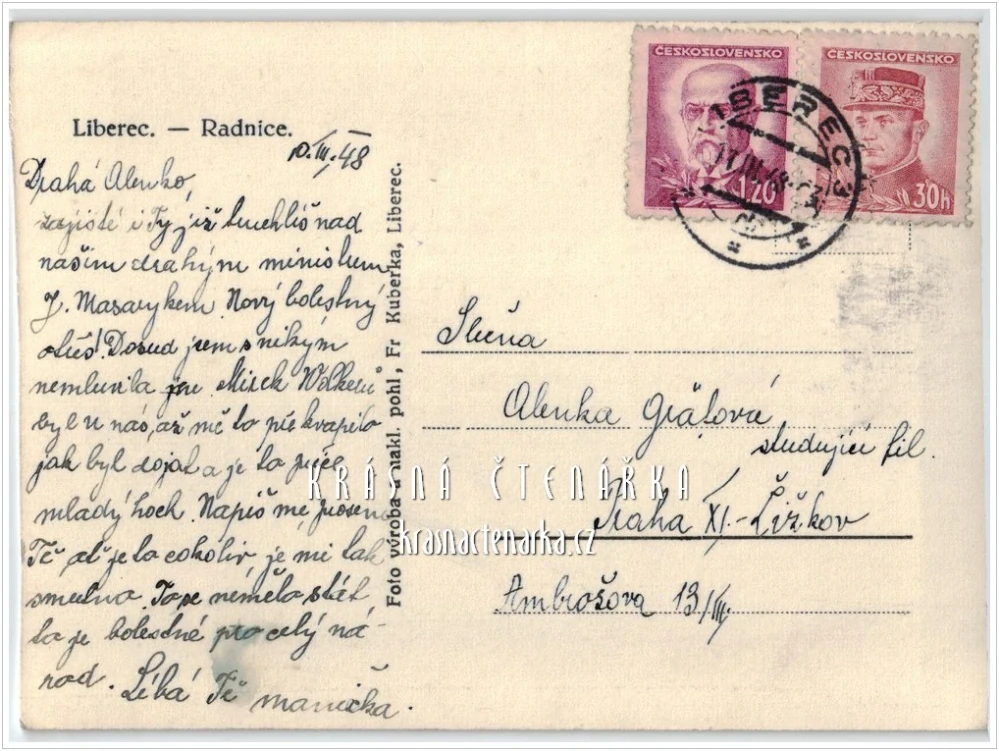 ČESKOSLOVENSKO
1.20
ČESKOSLOVENSKO
30h
LIBEREC 3
Liberec. — Radnice.
10.III.48
Drahá Alenko,
zajisté i Ty již truchlíš nad
našim drahým ministrem
J. Masarykem. Nový bolestný
Dosud jsem s nikým
nemluvila jen Mirek Wolkerů
byl u nás, až mě to překvapilo
jak byl dojat a je to přece
mladý hoch. Napiš mě prosím
Tě, ať je to cokoliv, je mi tak
smutno. To se nemělo stát
to je bolestné pro celý ná-
rod. Líbá Tě manička.
Foto výroba a nakl. pohl., Fr Kuberka, Liberec.
Slečna
Alenka
studující fil.
Praha XI.-Žižkov
Ambrožova 13/III.
KRÁSNÁ ČTENÁŘKA
krasnactenarka.cz